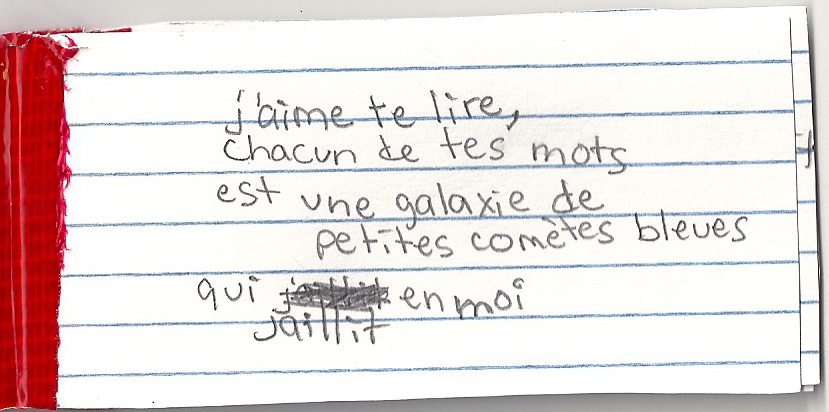 j'aime te lire,
chacun de tes mots
est une galaxie de
petites comètes bleues
qui en moi
jaillit